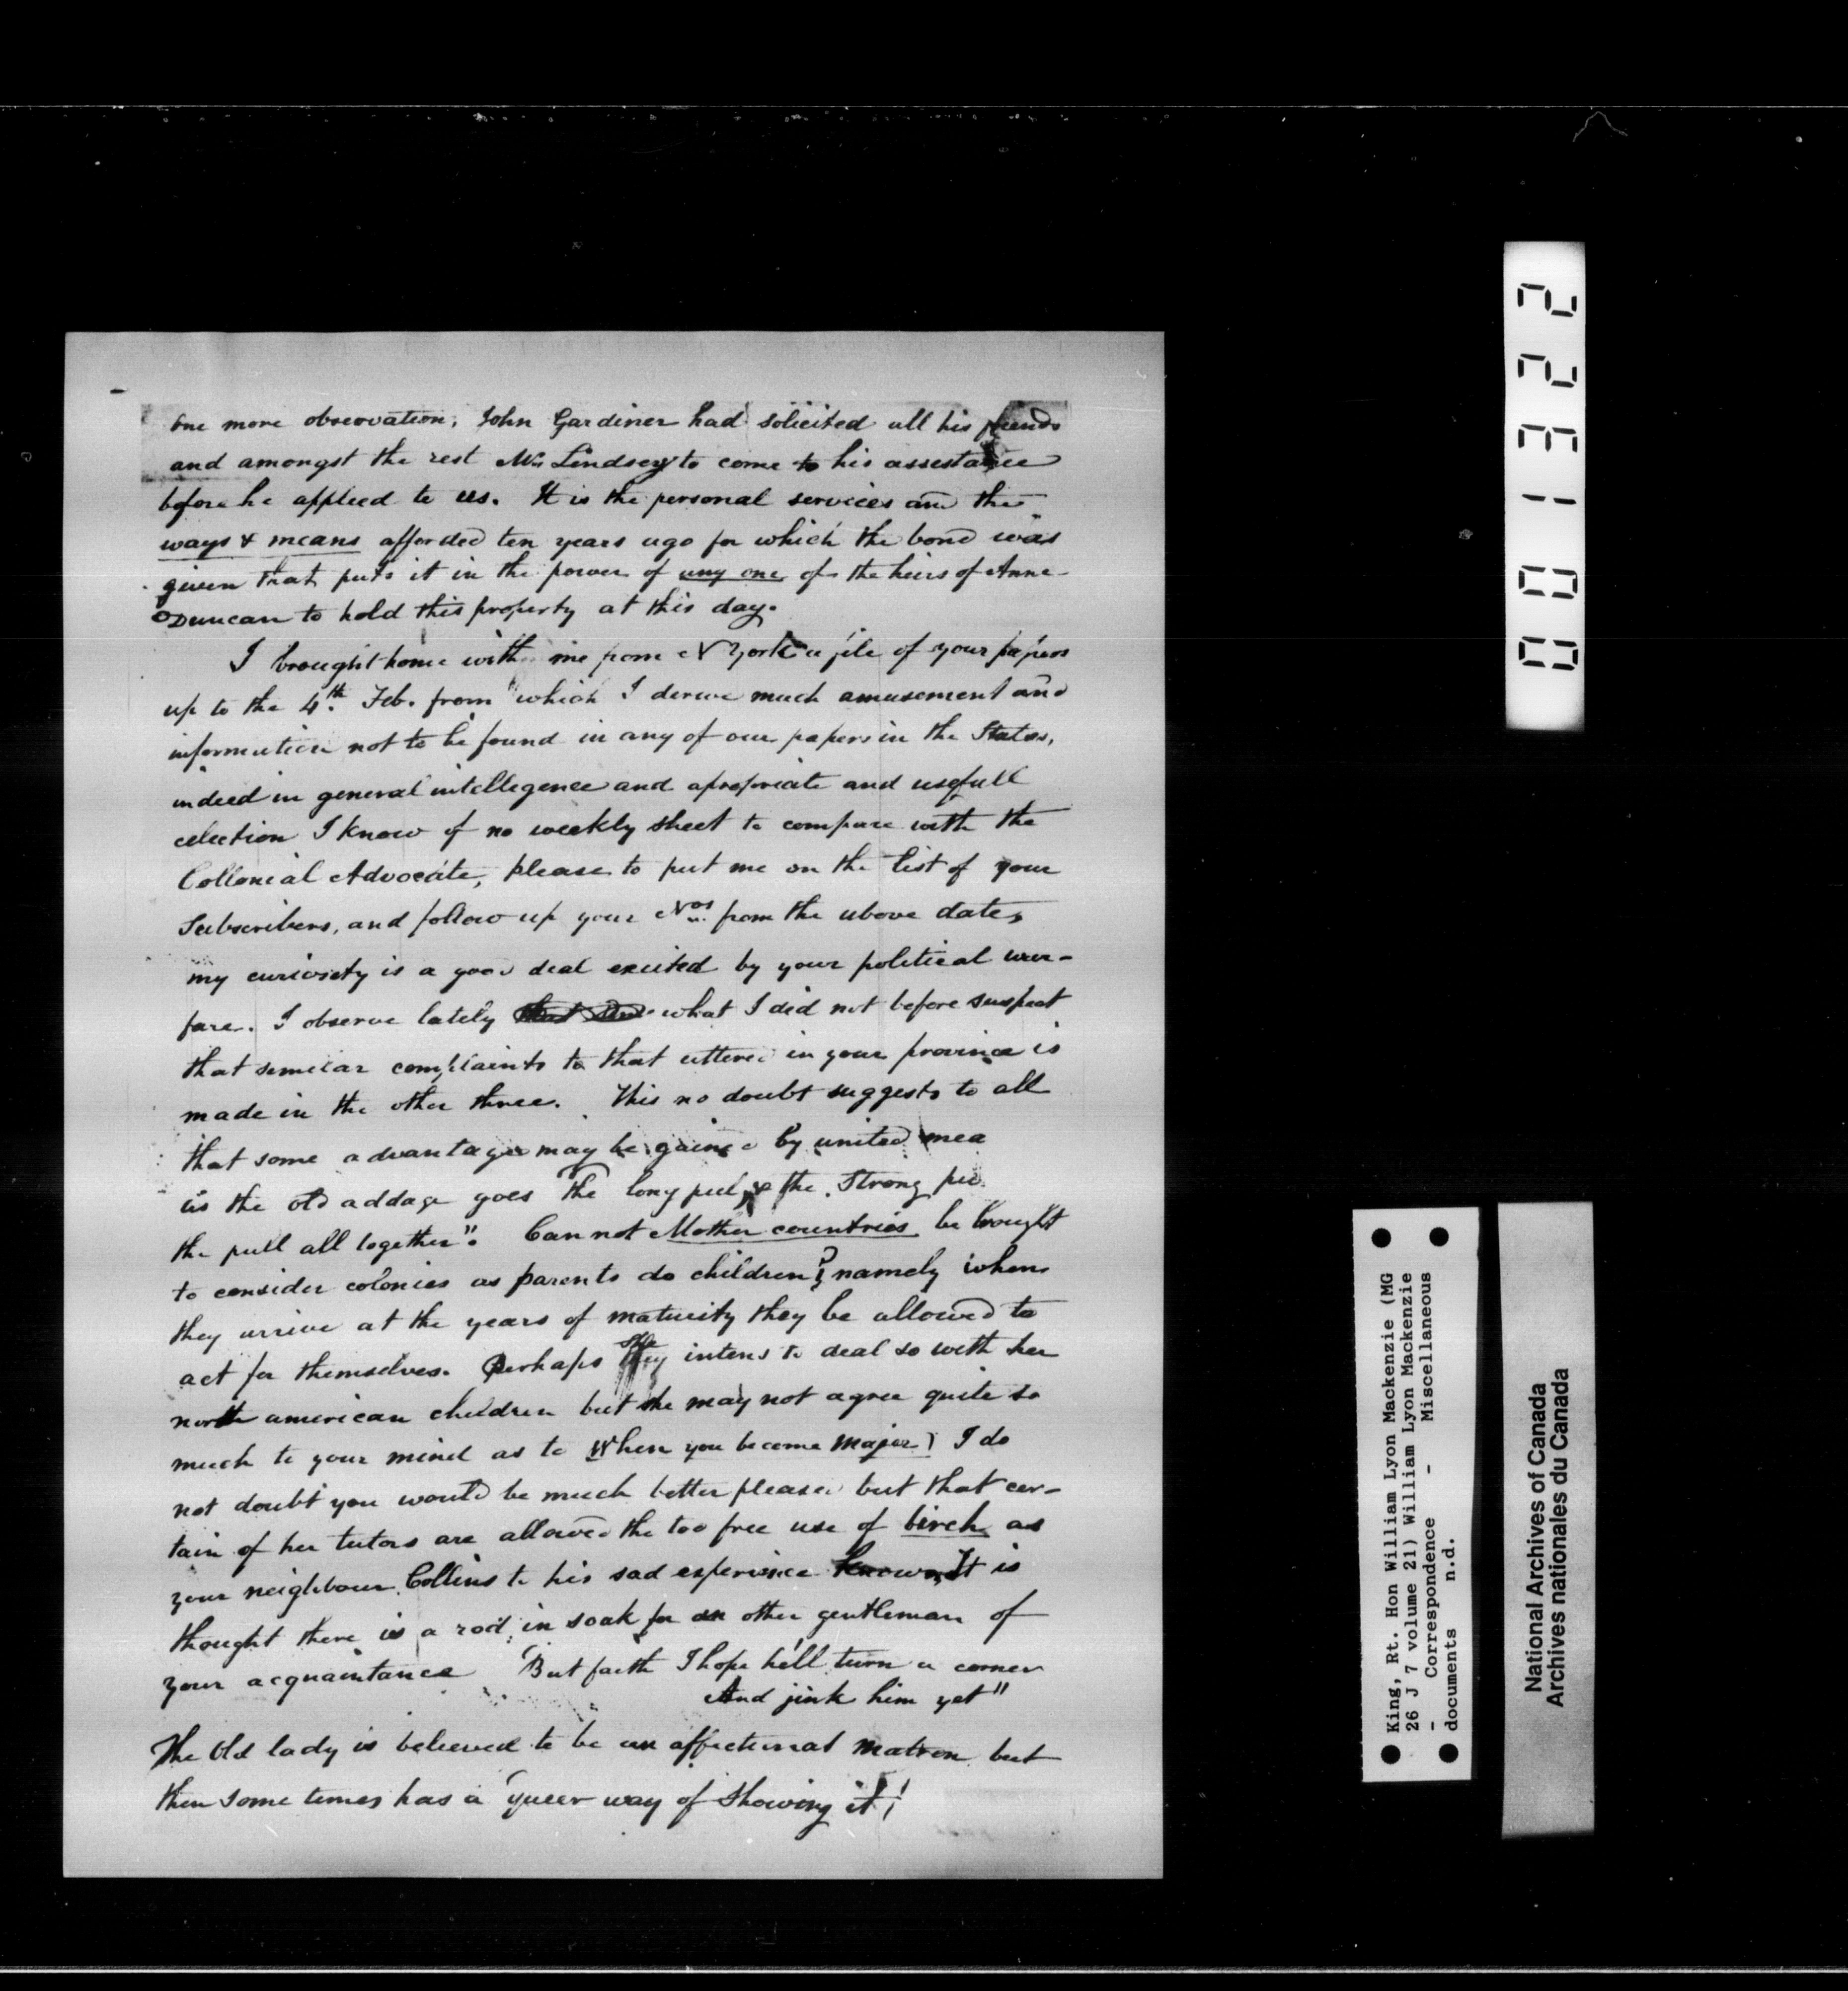 one more observation, John Gardiner had solicited all his friends
and amongst the rest Mrs Lindsey to come to his assestance
before he applied to us. It is the personal services and the
ways & means afforded ten years ago for which the bond was
given that puts it in the power of any one of the heirs of Anne
Duncan to hold this property at this day.
I brought home with me from N York a file of your papers
up to the 4th. Feb. from which I derive much amusement and
information not to be found in any of our papers in the States,
indeed in general intellegence and apropriate and usefull
celection I know of no weekly sheet to compare with the
Collonial Advocate, please to put me on the list of your
Subscribers, and follow up your Nos from the above date,
my curiosity is a good deal excited by your political war-
fare. I observe lately what I did not before suspect
that semilar complaints to that uttered in your province is
made in the other three. This no doubt suggests to all
that some advantages may be gained by united mea
as the old addage goes "The long pull, & the Strong pu
the pull all together". Can not Mother countries be brought
to consider colonies as parents do children? namely when
they arrive at the years of maturity they be allowed to
act for themselves. Perhaps she intens to deal so with her
north american children but she may not agree quite so
much to your mind as to When you become major! I do
not doubt you would be much better pleased but that cer-
tain of her tutors are allowed the too free use of birch as
your neighbour Collins to his sad experience knows. It is
thought there is a rod in soak for an other gentleman of
your acquaintance "But faith I hope he'll turn a corner
And jink him yet"
The Old lady is believed to be an affectionat matron but
then some times has a queer way of showing it!
001322
King, Rt. Hon William Lyon Mackenzie (MG
26 J 7 volume 21) William Lyon Mackenzie
- Correspondence - Miscellaneous
documents n.d.
National Archives of Canada
Archives nationales du Canada